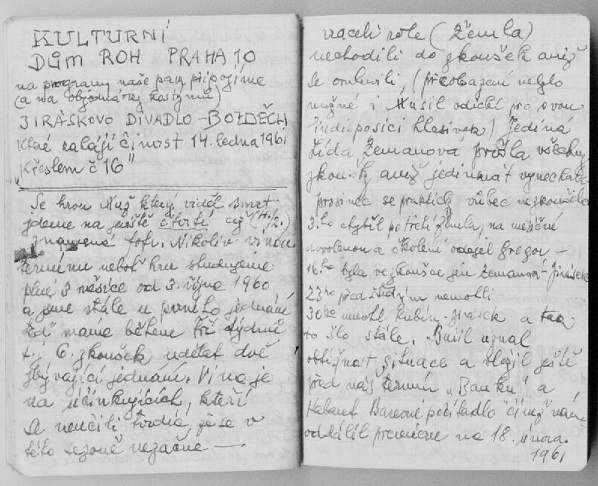 KULTURNÍ
DŮM ROH PRAHA 10
na programy naše pak připojíme
(a na objednávky kostýmů)
JIRÁSKOVO DIVADLO - BOZDĚCH
které zahájí činost 14. ledna 1961
"Křeslem č 16"
Se hrou Muž který viděl smrt
jdeme na ještě čtvrtí což
znamená tofu. Nikoliv vinou
termínu neboť hru studujeme
plné 3 měsíce od 3. října 1960
a jsme stále u prvního jednání
teď máme během tří týdnů
t.j. 6. zkoušek udělat dvě
zbývající jednání. Vina je
na účinkujících, kteří
se neučili tvrdíc, že se v
této sezoně nezačne —
vraceli role (Žemla)
nechodili do zkoušek aniž
se omluvili, (přeobsazení nebylo
možné i Musil odřekl pro svou
indisposici hlasivek) Jediná
Lída Zemanova prošla všechny
zkoušky aniž jedinkrát vynechala
prosinec se prakticky vůbec nezkoušelo
3.ho chybil
dovolenou a školení odejel Gregor —
16.ho byla ve zkoušce jen Zemanova - Jirásek
23ho před Štědrým nemohli
30ho nemohl Kubín - Jirásek a tak
to šlo stále. Musil uznal
obtížnost situace a vložil ještě
před náš termín "Banku" a
Kabaret Barevné počítadlo čímž nám
oddálil premiéru na 18. února
1961